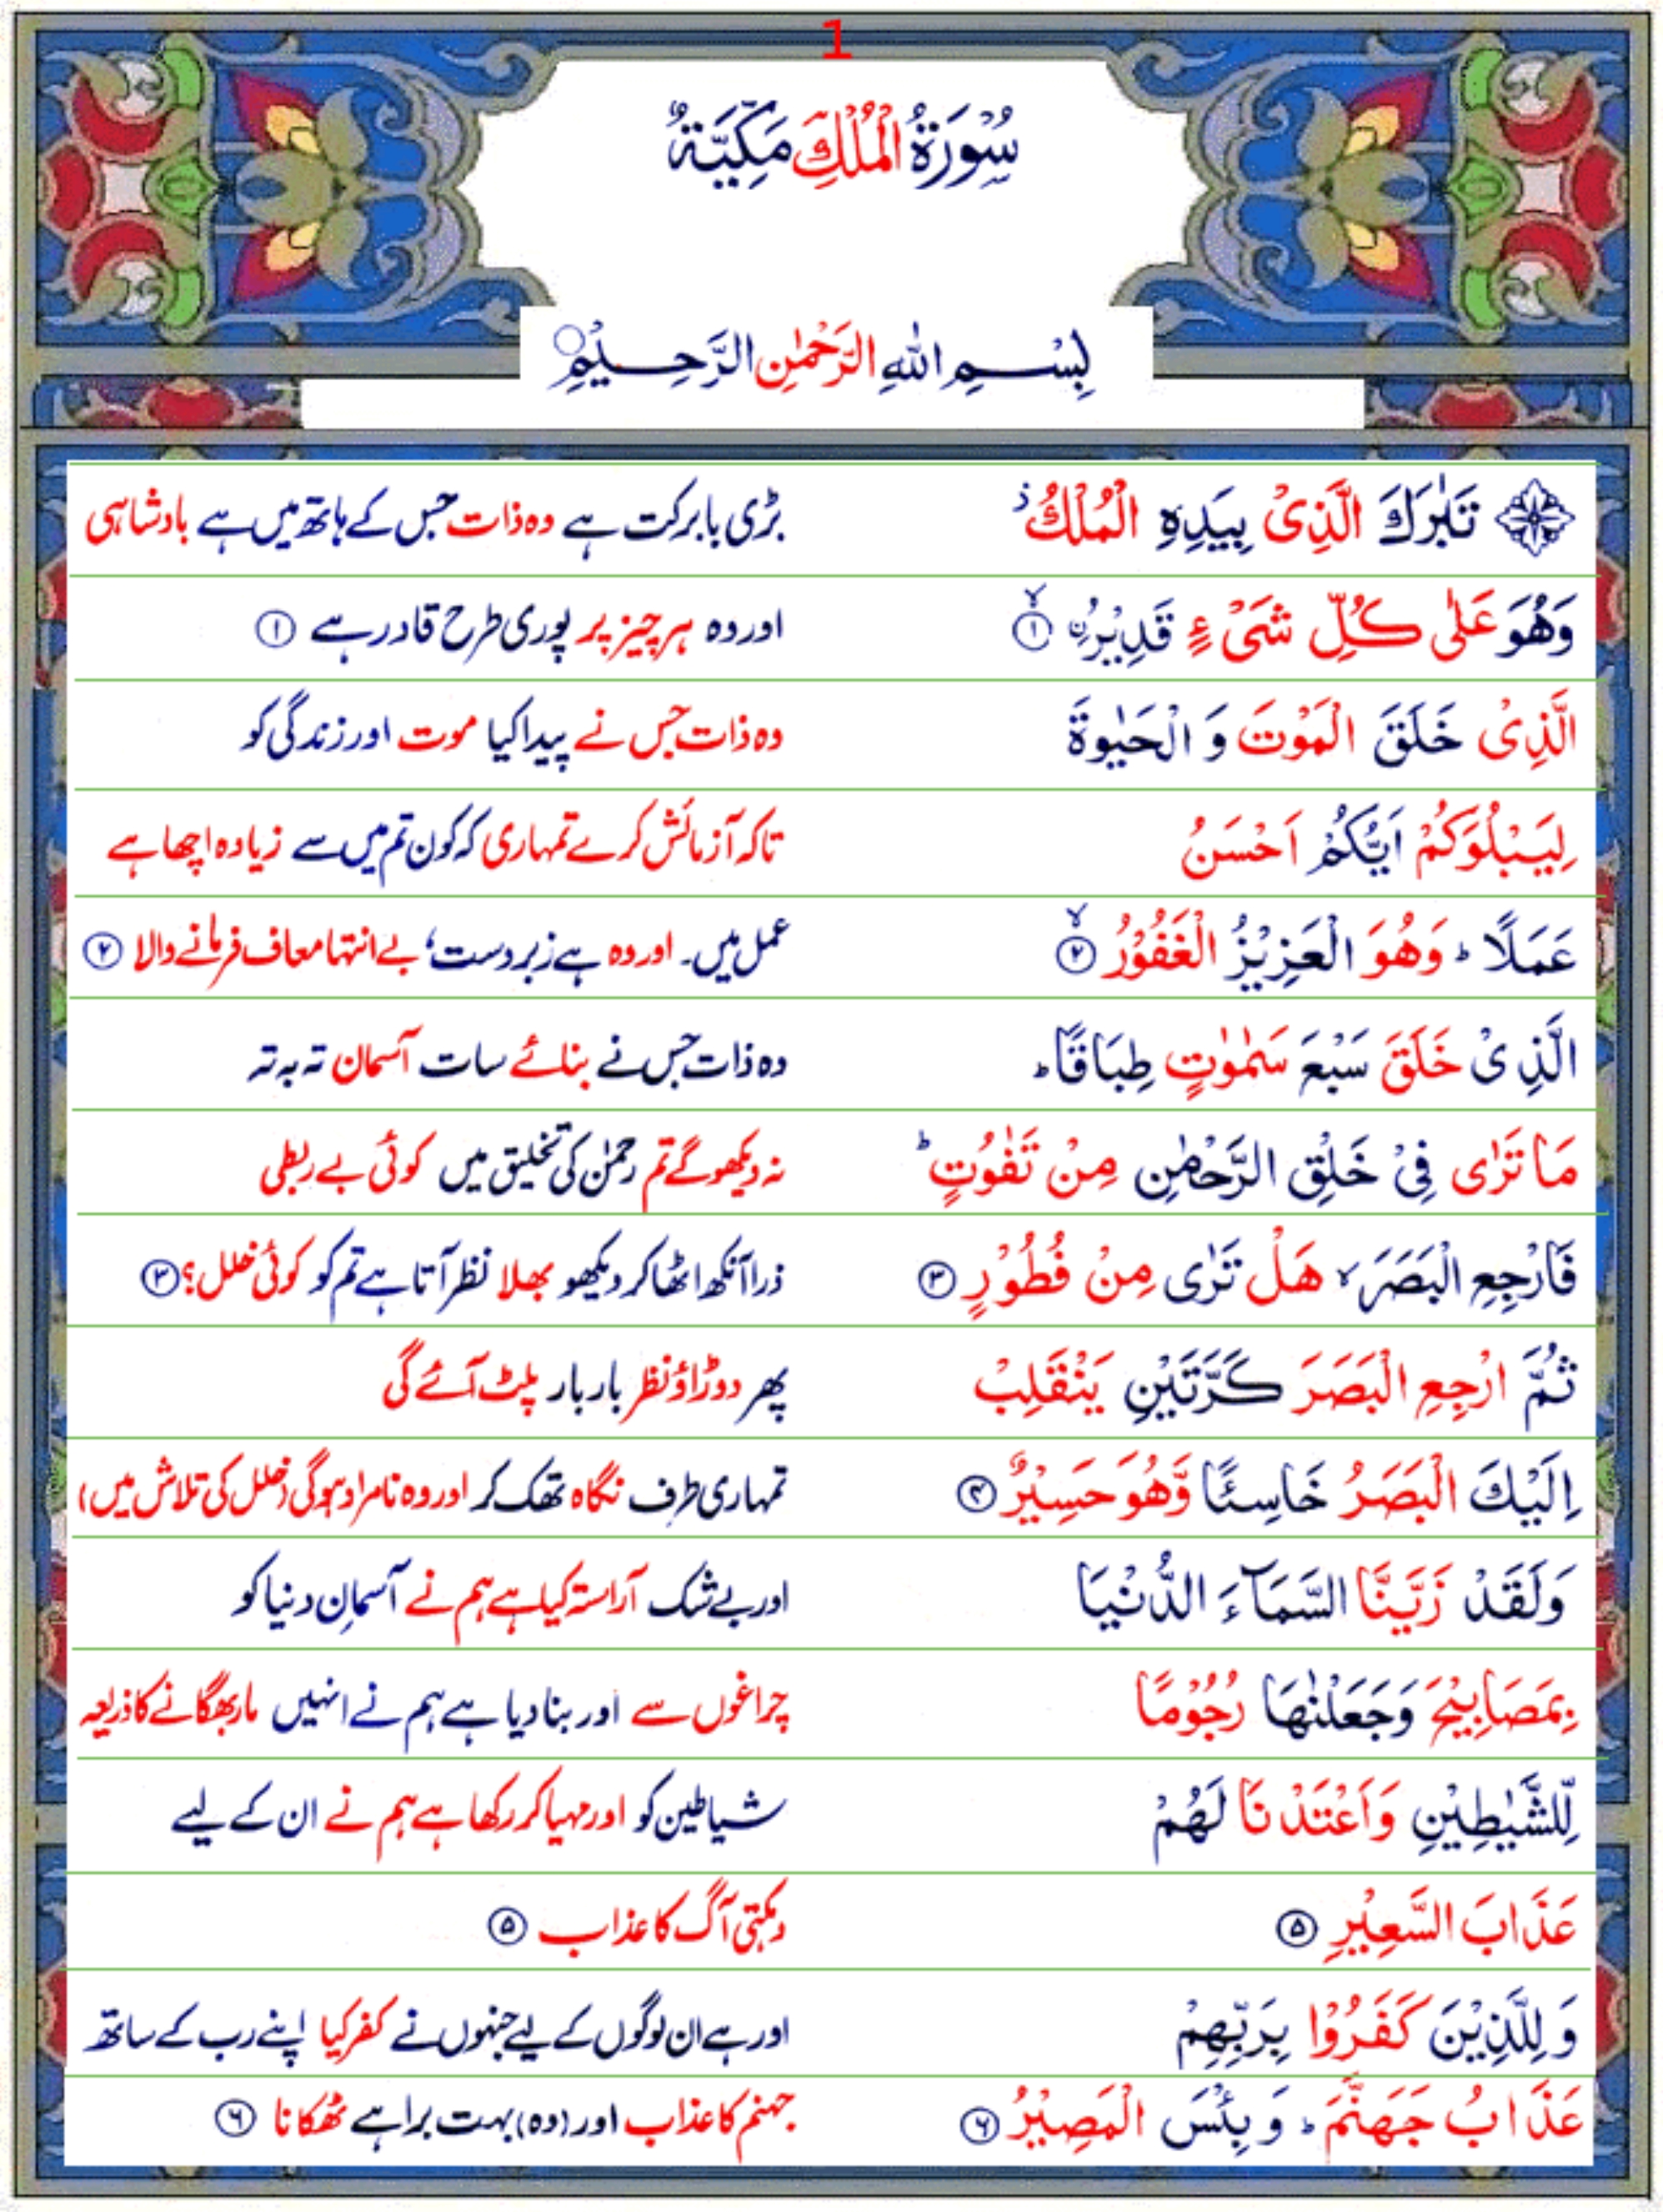 1
سُوْرَةُ الْمُلْكِ مَكِّيَّةٌ
بِسْمِ اللهِ الرَّحْمٰنِ الرَّحِيْمِ
تَبٰرَكَ الَّذِىْ بِيَدِهِ الْمُلْكُ ز بڑی بابرکت ہے وہ ذات جس کے ہاتھ میں ہے بادشاہی
وَهُوَ عَلٰى كُلِّ شَىْءٍ قَدِيْرُۨ ﴿۱﴾ اور وہ ہر چیز پر پوری طرح قادر ہے ﴿۱﴾
الَّذِىْ خَلَقَ الْمَوْتَ وَ الْحَيٰوةَ وہ ذات جس نے پیدا کیا موت اور زندگی کو
لِيَبْلُوَكُمْ اَيُّكُمْ اَحْسَنُ تاکہ آزمائش کرے تمہاری کہ کون تم میں سے زیادہ اچھا ہے
عَمَلًا ؕ وَهُوَ الْعَزِيْزُ الْغَفُوْرُ ﴿۲﴾ عمل میں۔ اور وہ ہے زبردست، بے انتہا معاف فرمانے والا ﴿۲﴾
الَّذِىْ خَلَقَ سَبْعَ سَمٰوٰتٍ طِبَاقًا ؕ وہ ذات جس نے بنائے سات آسمان تہ بہ تہ
مَا تَرٰى فِىْ خَلْقِ الرَّحْمٰنِ مِنْ تَفٰوُتٍ ؕ نہ دیکھو گے تم رحمٰن کی تخلیق میں کوئی بے ربطی
فَارْجِعِ الْبَصَرَ ۙ هَلْ تَرٰى مِنْ فُطُوْرٍ ﴿۳﴾ ذرا آنکھ اٹھا کر دیکھو بھلا نظر آتا ہے تم کو کوئی خلل؟ ﴿۳﴾
ثُمَّ ارْجِعِ الْبَصَرَ كَرَّتَيْنِ يَنْقَلِبْ پھر دوڑاؤ نظر بار بار پلٹ آئے گی
اِلَيْكَ الْبَصَرُ خَاسِئًا وَّهُوَ حَسِيْرٌ ﴿۴﴾ تمہاری طرف نگاہ تھک کر اور وہ نامراد ہوگی (خلل کی تلاش میں)
وَلَقَدْ زَيَّنَّا السَّمَآءَ الدُّنْيَا اور بے شک آراستہ کیا ہے ہم نے آسمانِ دنیا کو
بِمَصَابِيْحَ وَجَعَلْنٰهَا رُجُوْمًا چراغوں سے اور بنا دیا ہے ہم نے انہیں مار بھگانے کا ذریعہ
لِّلشَّيٰطِيْنِ وَاَعْتَدْنَا لَهُمْ شیاطین کو اور مہیا کر رکھا ہے ہم نے ان کے لیے
عَذَابَ السَّعِيْرِ ﴿۵﴾ دہکتی آگ کا عذاب ﴿۵﴾
وَ لِلَّذِيْنَ كَفَرُوْا بِرَبِّهِمْ اور ہے ان لوگوں کے لیے جنہوں نے کفر کیا اپنے رب کے ساتھ
عَذَابُ جَهَنَّمَ ؕ وَ بِئْسَ الْمَصِيْرُ ﴿۶﴾ جہنم کا عذاب اور (وہ) بہت برا ہے ٹھکانا ﴿۶﴾